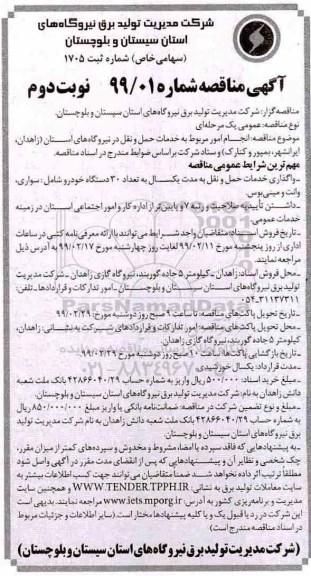 شرکت مدیریت تولید برق نیروگاه‌های
استان سیستان و بلوچستان
(سهامی خاص) شماره ثبت ۱۷۰۵
آگهی مناقصه شماره ۹۹/۰۱ نوبت دوم
مناقصه‌گزار: شرکت مدیریت تولید برق نیروگاه‌های استان سیستان و بلوچستان.
نوع مناقصه: عمومی یک مرحله‌ای
موضوع مناقصه: انجام امور مربوط به خدمات حمل و نقل در نیروگاه‌های استان (زاهدان،
ایرانشهر، بمپور و کنارک) و ستاد شرکت بر اساس ضوابط مندرج در اسناد مناقصه.
مهم‌ترین شرایط عمومی مناقصه
ـ واگذاری خدمات حمل و نقل به مدت یکسال به تعداد ۳۰ دستگاه خودرو شامل: سواری،
وانت و مینی‌بوس.
ـ داشتن تأییدیه صلاحیت و رتبه ۷ و پایین‌تر از اداره کار و امور اجتماعی استان در زمینه
خدمات عمومی.
ـ تاریخ فروش اسناد: متقاضیان واجد شرایط می‌توانند با ارائه معرفی‌نامه کتبی در ساعات
اداری از روز پنجشنبه مورخ ۹۹/۰۲/۱۱ لغایت روز چهارشنبه مورخ ۹۹/۰۲/۱۷ به آدرس ذیل
مراجعه نمایند.
ـ محل فروش اسناد: زاهدان ـ کیلومتر ۵ جاده گوربند، نیروگاه گازی زاهدان ـ شرکت مدیریت
تولید برق نیروگاه‌های استان سیستان و بلوچستان ـ امور تدارکات و قراردادها ـ تلفن:
۰۵۴ـ۳۱۱۳۷۳۱۱
ـ تاریخ تحویل پاکت‌های مناقصه: تا ساعت ۹ صبح روز دوشنبه مورخ: ۹۹/۰۲/۲۹
ـ محل تحویل پاکت‌های مناقصه: امور تدارکات و قراردادهای شرکت به نشانی: زاهدان،
کیلومتر ۵ جاده گوربند، نیروگاه گازی زاهدان.
ـ تاریخ بازگشایی پاکت‌ها: ساعت ۱۰ صبح روز دوشنبه مورخ ۹۹/۰۲/۲۹.
ـ مدت قرارداد: یکسال خورشیدی.
ـ مبلغ خرید اسناد: ۵۰۰/۰۰۰ ریال واریز به شماره حساب ۴۲۸۶۶۰۴۰/۲۹ بانک ملت شعبه
دانش زاهدان به نام: شرکت مدیریت تولید برق نیروگاه‌های استان سیستان و بلوچستان.
ـ مبلغ و نوع تضمین شرکت در مناقصه: ضمانت‌نامه بانکی یا واریز مبلغ ۸۵۰/۰۰۰/۰۰۰ ریال
به شماره حساب ۴۲۸۶۶۰۴۰/۲۹ بانک ملت شعبه دانش زاهدان به نام شرکت مدیریت تولید
برق نیروگاه‌های استان سیستان و بلوچستان.
ـ به پیشنهادهایی که فاقد سپرده یا امضاء، مشروط و مخدوش و سپرده‌های کمتر از میزان مقرر،
چک شخصی و نظایر آن و پیشنهادهایی که پس از انقضای مدت مقرر در آگهی واصل شود
مطلقاً ترتیب اثر داده نخواهد شد. ضمناً متقاضیان می‌توانند جهت کسب اطلاعات بیشتر به
سایت معاملات تولید برق به نشانی: WWW.TENDER.TPPH.IR و همچنین سایت
مدیریت و برنامه‌ریزی کشور به آدرس: www.iets.mporg.ir مراجعه نمایند. بدیهی است
این شرکت در رد یا قبول یک و یا کلیه پیشنهادها مختار است (سایر اطلاعات و جزئیات مربوط
در اسناد مناقصه مندرج است)
(شرکت مدیریت تولید برق نیروگاه‌های استان سیستان و بلوچستان)
ParsNamadData
۰۲۱-۸۸۳۴۹۶۷۰